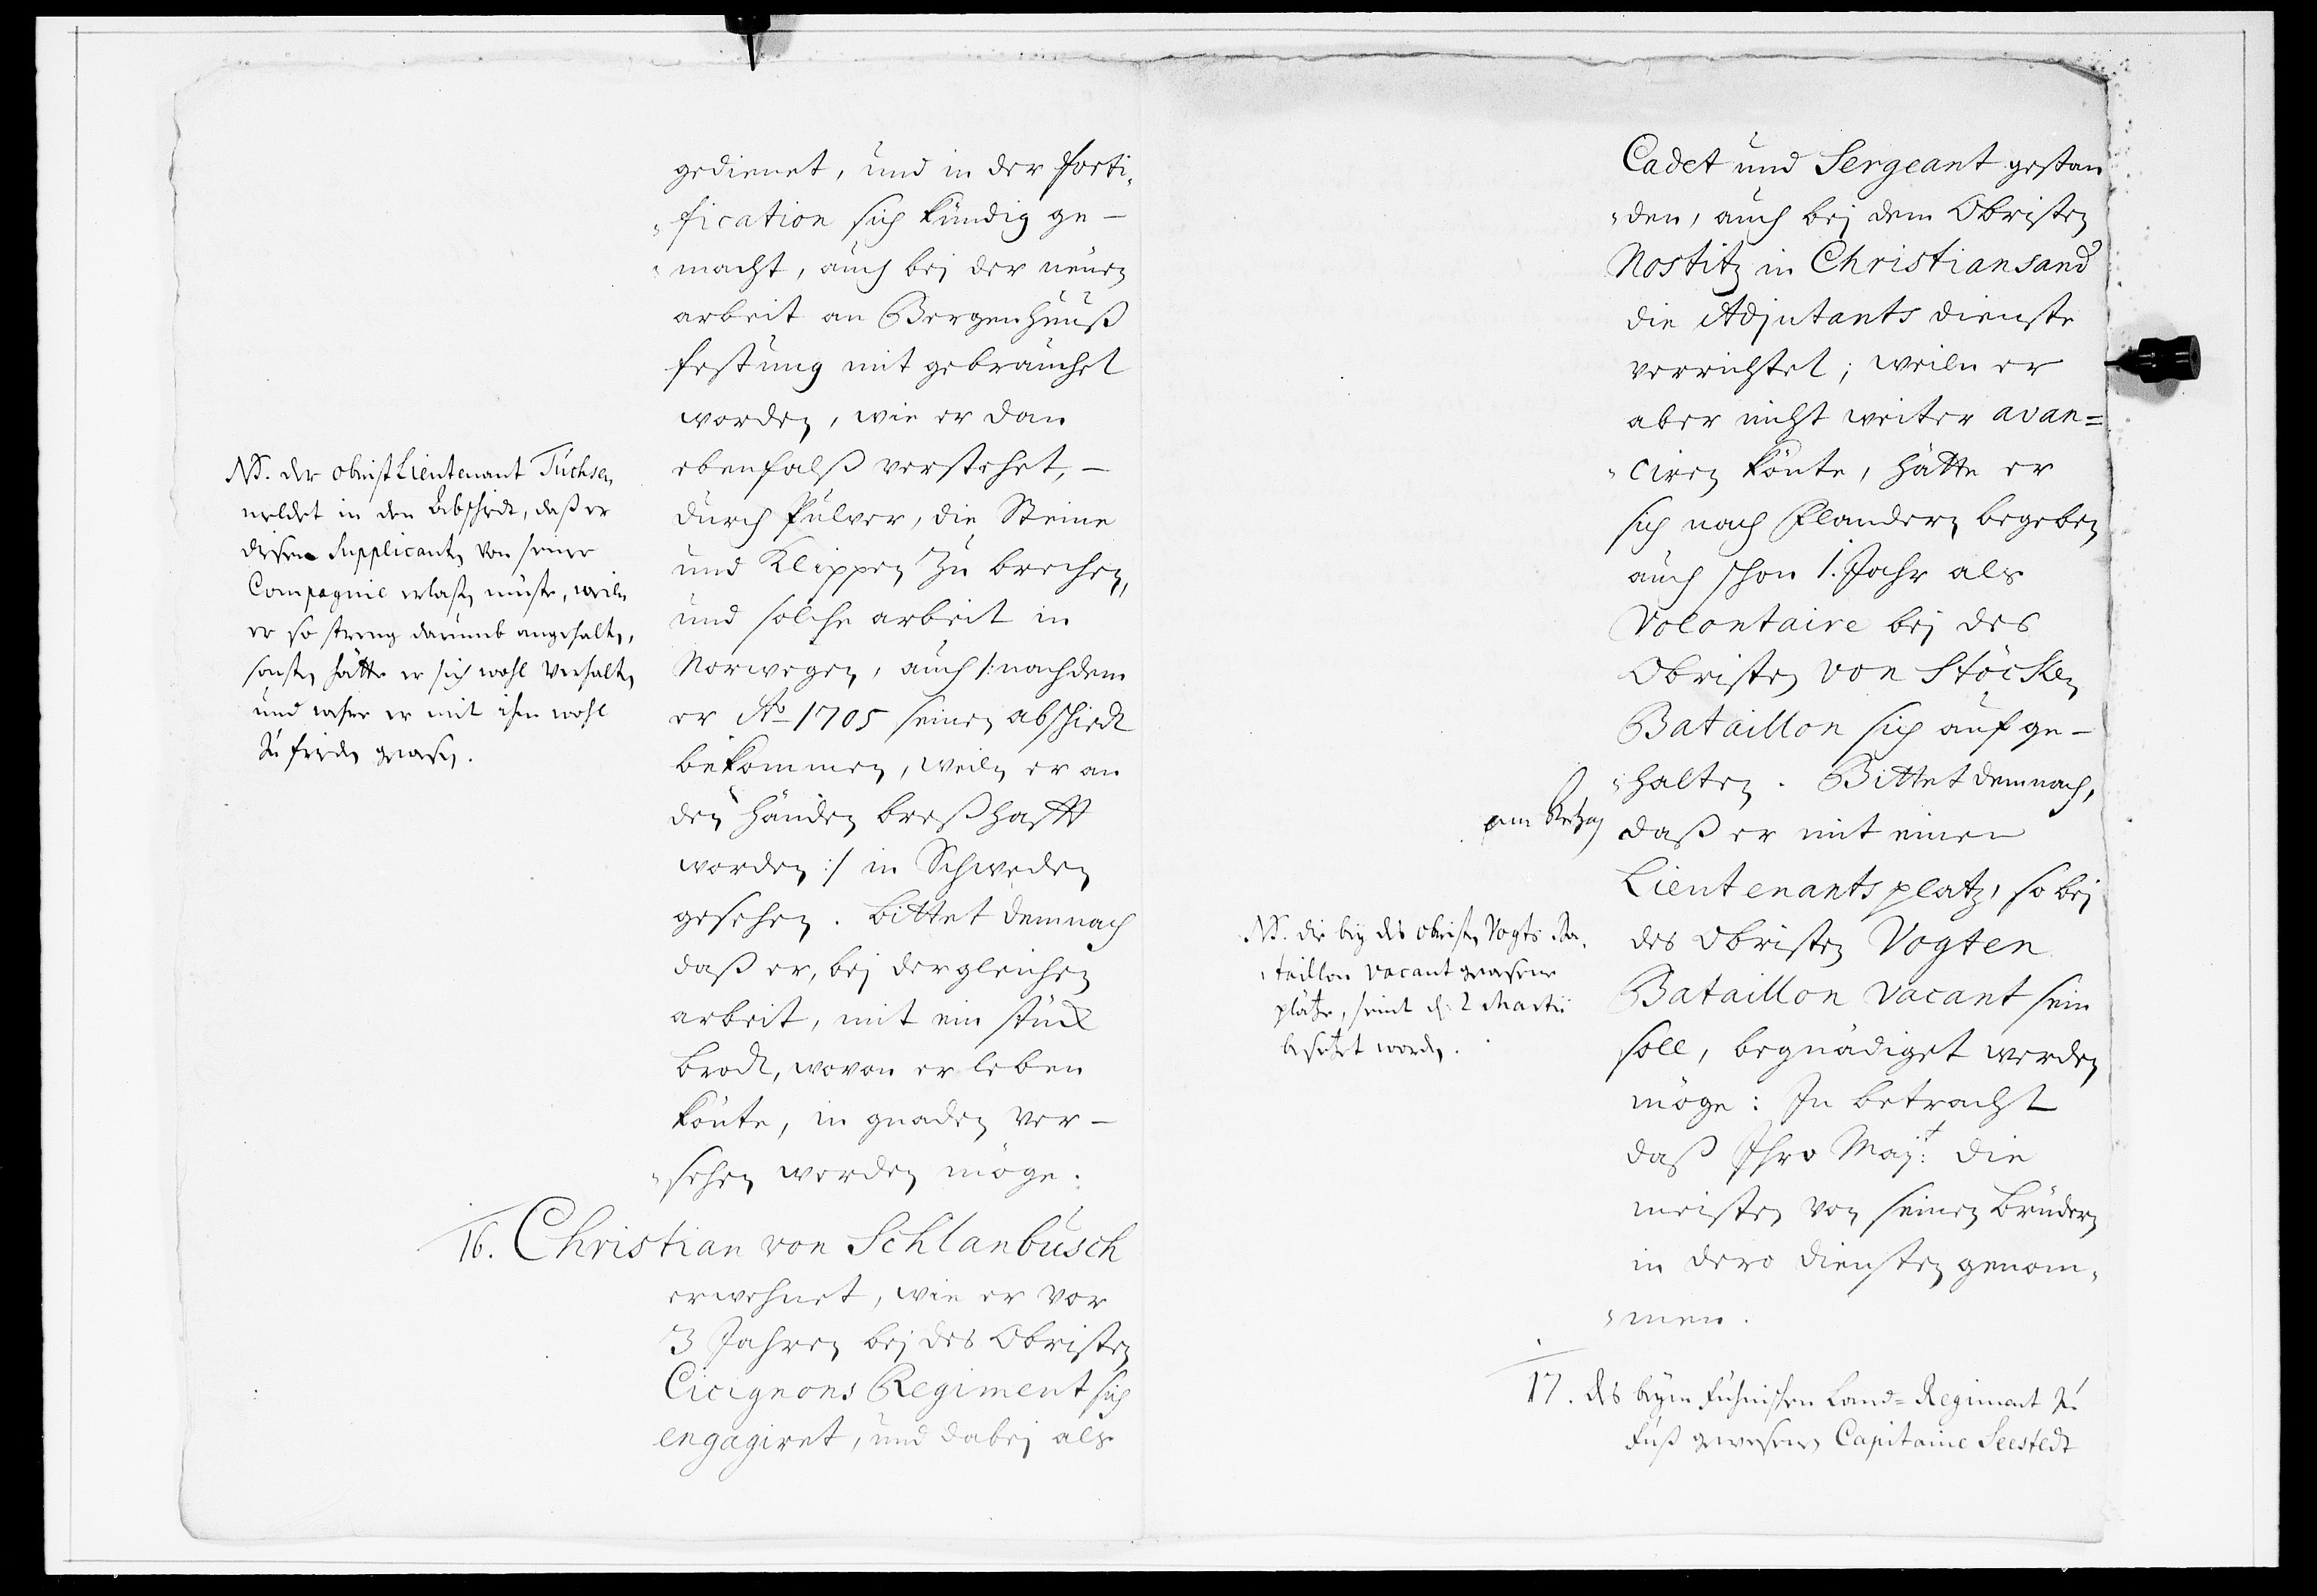 gedienet, und in der forti,
"fication sich kündig ge-
"macht, auch bej der neüen
arbeit an Bergenhüuß
festung mit gebrauchet
worden, wie er dan
ebenfalß verstehet,-
durch Pulver, die Steine
und Klippen zu brechen,
und solche arbeit in
Norwegen, auch /: nachdem
er Ao 1705 seinen abschiedt
bekommen, weiln er an
den händen breßhafft
worden :/ in Schweden
gesehen. bittet demnach
daß er, bej dergleichen
arbeit, mit ein stück
brodt, wovon er leben
könte, in gnaden ver-
"sehen werden möge.
NB. der obrist Lieutenant Tuchsen,
meldet in den Abschiedt, daß er
diesen Supplicanten von seiner
Compagnie erlaßen müste, weiln
er so streng darumb angehalten,
sonsten hätte er sich wohl verhalten
und wehre er mit ihm wohl
zu frieden gewesen.
16. Christian von Schlanbusch
erwehnet, wie er vor
3 Jahren bej des Obristen
Cicignons Regiment sich
engagiret, und dabej als
Cadet und Sergeant gestan
"den, auch bej dem Obristen
Nostitz in Christiansand
die Adjutants dienste
verrichtet; weiln er
aber nicht weiter avan=
"ciren könte, hätte er
sich nach Flandern begeben
auch schon 1. Jahr als
Volontaire bej des
Obristen von Stöcken
Bataillon sich aufge-
"halten. Bittet demnach,
daß er mit einen
Lieutenants platz, so bej
des Obristen Vogten
Bataillon vacant sein
soll, begnädiget werden
möge: In betracht
daß Ihro Majt: die
meisten von seinen brüdern
in dero diensten genom,
"men.
NB. die bey des obristen Vogts Ba,
"taillon vacant gewesene
plätze, seint d: 2 Martii
besetzt worden.
17. des beym Fühnischen Land=Regiment zu
Fuß gewesenen Capitaine Seestedt